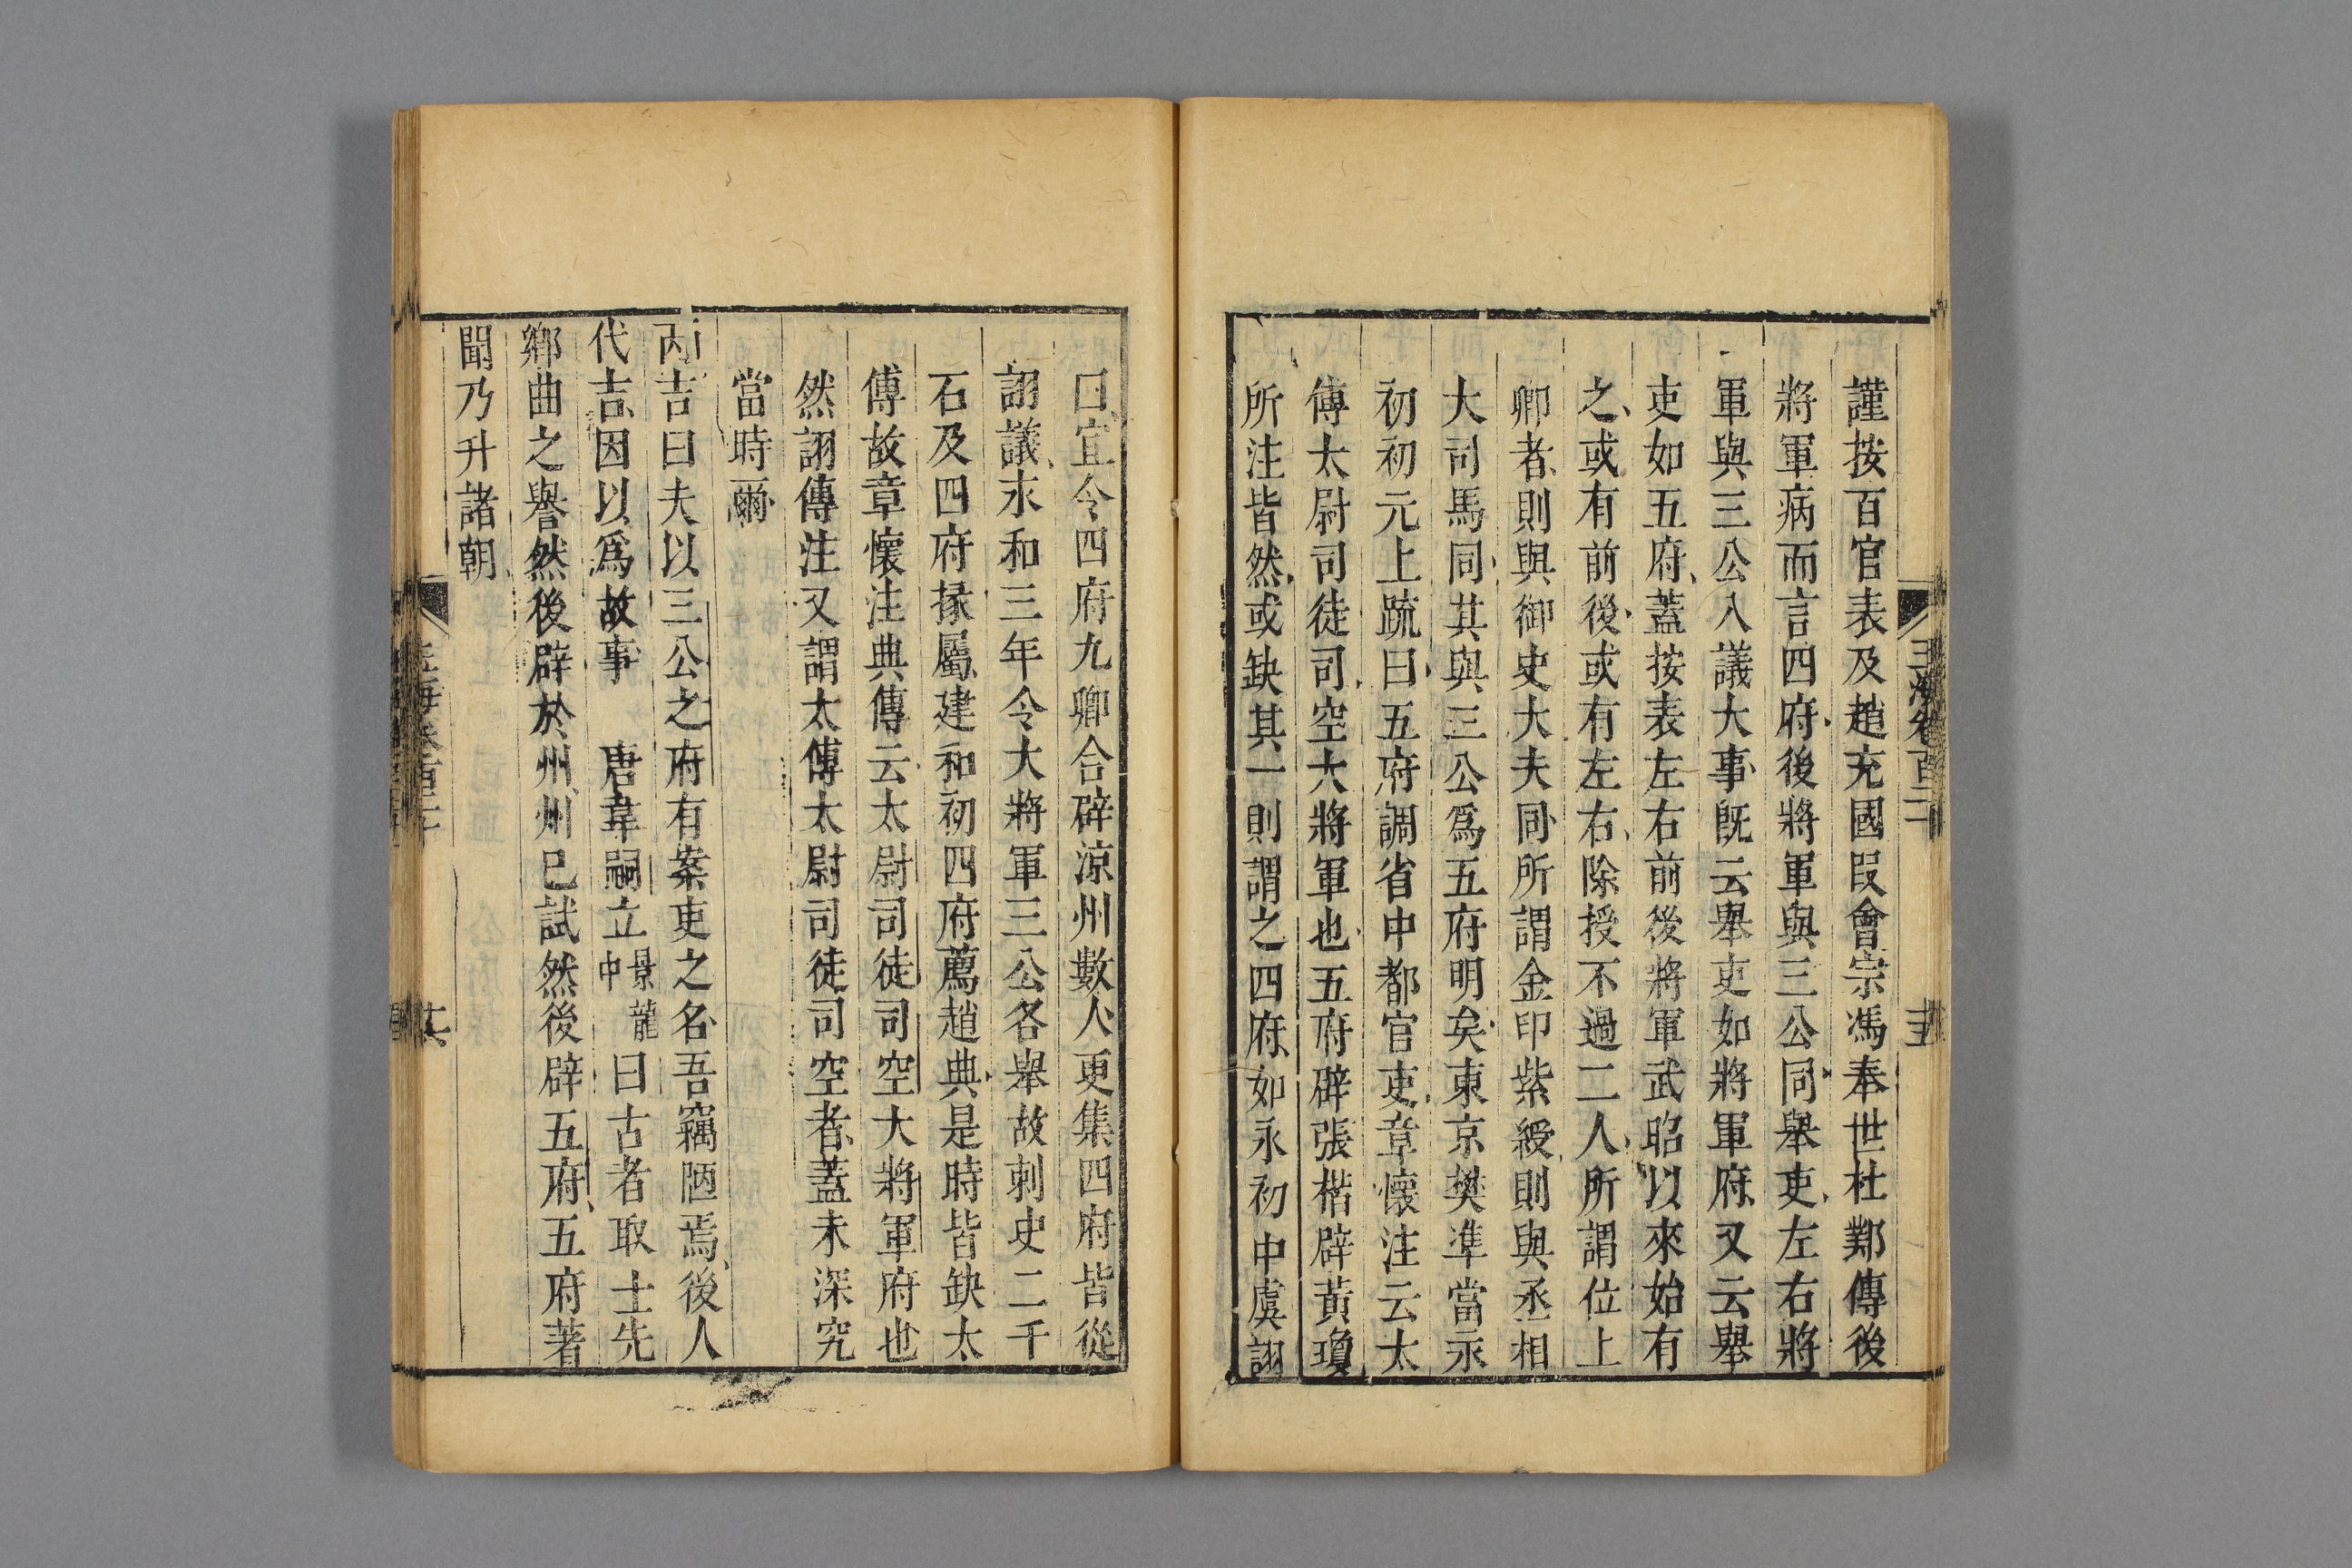 謹按百官表及趙充國叚會宗馮奉世杜鄴傳後
將軍病而言四府後將軍與三公同舉吏左右將
軍與三公入議大事既云舉吏如將軍府又云舉
吏如五府蓋按表左右前後將軍武昭以來始有
之或有前後或有左右除授不過二人所謂位上
卿者則與御史大夫同所謂金印紫綬則與丞相
大司馬同其與三公為五府明矣東京樊準當永
初初元上疏曰五府調省中都官吏章懷注云太
傅太尉司徒司空大將軍也五府辟張楷辟黃瓊
所注皆然或缺其一則謂之四府如永初中虞詡
曰宜令四府九卿合辟涼州數人更集四府皆從
詡議永和三年令大將軍三公各舉故刺史二千
石及四府掾屬建和初四府薦趙典是時皆缺太
傅故章懷注典傳云太尉司徒司空大將軍府也
然詡傳注又謂太傅太尉司徒司空者蓋未深究
當時爾
丙吉曰夫以三公之府有案吏之名吾竊陋焉後人
代吉因以為故事　唐韋嗣立景龍中曰古者取士先
鄉曲之譽然後辟於州州已試然後辟五府五府著
聞乃升諸朝
玉海卷百二十